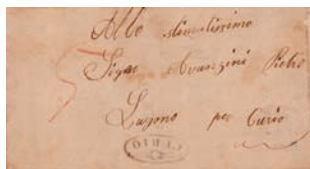 Allo stimatissimo
Sigor Avanzini Pietro
Lugano per Curio
CURIO